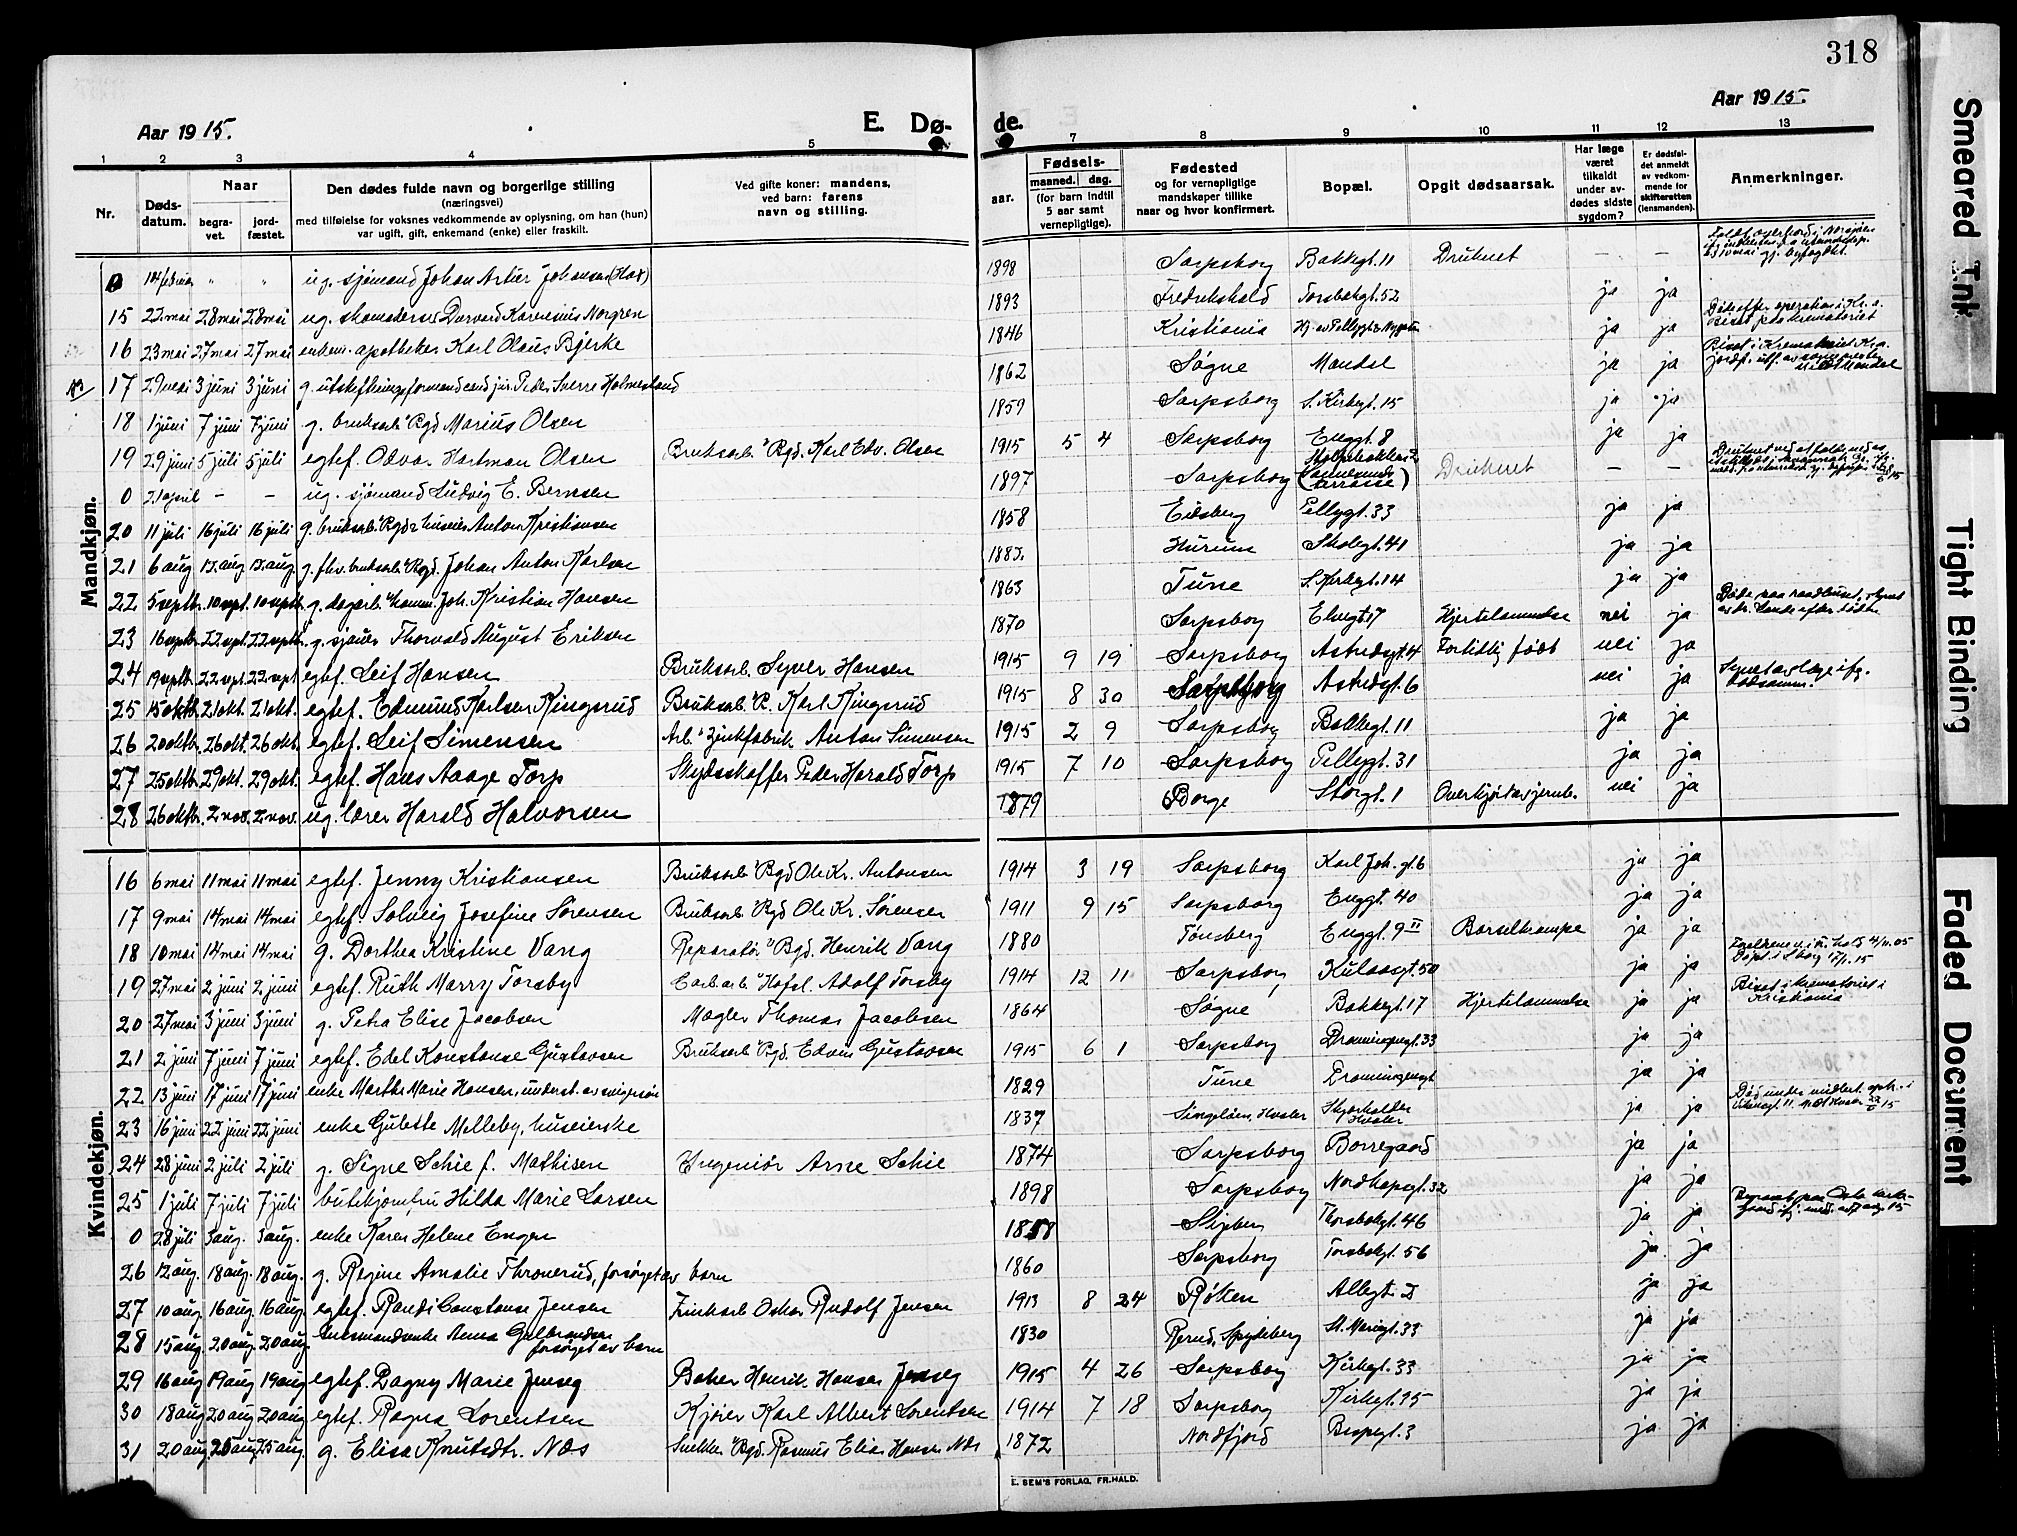 318
Aar 1915.
E. Dø-
de.
Aar 1915.
1 2 3 4 5 7 8 9 10 11 12 13
Nr.
Døds-datum.
Naar
begra-vet.
jord-fæstet.
Den dødes fulde navn og borgerlige stilling
(næringsvei)
med tilføielse for voksnes vedkommende av oplysning, om han (hun)
var ugift, gift, enkemand (enke) eller fraskilt.
Ved gifte koner: mandens,
ved barn: farens
navn og stilling.
aar.
Fødsels-
maaned. dag.
(for barn indtil
5 aar samt
vernepligtige).
Fødested
og for vernepligtige
mandskaper tillike
naar og hvor konfirmert.
Bopæl.
Opgit dødsaarsak.
Har læge
været
tilkaldt
under av-
dødes sidste
sygdom?
Er dødsfal-
det anmeldt
av vedkom-
mende for
skifteretten
(lensmanden).
Anmerkninger.
Mandkjøn.
0 14 februar " " ug. sjømand Johan Artur Johansen 1898 Sarpsborg Bakkegt. 11 Druknet — —
15 22 mai 28 mai 28 mai ug. Norgren 1893 Fredrikshald Torsbekgt. 52 ja ja
16 23 mai 27 mai 27 mai enkem. apotheker Karl Olaus Bjerke 1846 Kristiania ja ja
17 29 mai 3 juni 3 juni g. Peder Sverre Holmesland 1862 Søgne Mandal ja ja
18 1 juni 7 juni 7 juni g. bruksarb. v/ Bgd Marius Olsen 1859 Sarpsborg S. Kirkegt. 15 ja ja
19 29 juni 5 juli 5 juli egtef. Odvar Hartman Olsen Bruksarb. v/ Bgd. Karl Edv. Olsen 1915 5 4 Sarpsborg Enggt. 8 ja ja
0 21 april — — ug. sjømand Ludvig E. Berntsen 1897 Sarpsborg Druknet — —
20 11 juli 16 juli 16 juli g. bruksarb. v/ Bgd & huseier Anton Kristiansen 1858 Eidsberg Pellygt. 33 ja ja
21 6 aug 12. aug 12. aug. g. fhv. bruksarb. v/ Bgd. Johan Anton Karlsen 1883. Hurum Skolegt. 41 ja ja
22 5 septbr. 10 sept. 10 septb. g. dagarb. v/ komm. Joh. Kristian Hansen 1863 Tune S. Kirkegt. 14 ja ja
23 16 septbr. 22 sept. 22 septb. g. sjauer Thorvald August Eriksen 1870 Sarpsborg Elvegt. 7 Hjertelammelse nei ja
24 19 septb. 22 sept. 22 sept egtef. Leif Hansen Bruksarb. Syver Hansen 1915 9 19 Sarpsborg Astridsgt. 4 Fortidlig født nei ja
25 15 oktb. 21 okt. 21 okt. egtef. Edmund Karlsen Kingsrud Bruksarb. v/ B. Karl Kingsrud 1915 8 30 Sarpsborg Astridsgt. 6 nei ja
26 20 oktb. 26 okt. 26 okt. egtef. Leif Simensen Arb. v/ Zinkfabrik Anton Simensen 1915 2 9 Sarpsborg Bakkegt. 11 ja ja
27 25 oktb. 29 okt. 29 okt. egtef. Hans Aage Torp Skydsskaffer Peder Harald Torp 1915 7 10 Sarpsborg Pellygt. 31 ja ja
28 26 oktb. 2 nov. 2 nov. ug. lærer Harald Halvorsen 1879 Borge Storgt. 1 Overkjørt av jernb. nei ja
Kvindekjøn.
16 6 mai 11 mai 11 mai egtef. Jenny Kristiansen Bruksarb. v/ Bgd Ole Kr. Antonsen 1914 3 19 Sarpsborg Karl Joh. gt. 6 ja ja
17 9 mai 14 mai 14 mai egtef. Solveig Josefine Sørensen Bruksarb. v/ Bgd Ole Kr. Sørensen 1911 9 15 Sarpsborg Enggt. 40 ja ja
18 10 mai 14 mai 14 mai g. Dorthea Kristine Vang Reparatør v/ Bgd. Henrik Vang 1880 Tønsberg Enggt. 9 II Barselkrampe ja ja
19 27 mai 2 juni 2 juni egtef. Ruth Marry Torsby Carb. arb. v/ Hafsl. Adolf Torsby 1914 12 11 Sarpsborg Kulaasgt. 50 ja ja
20 27 mai 3 juni 3 juni g. Petra Elise Jacobsen Mægler Thomas Jacobsen 1864 Søgne Bakkegt. 17 Hjertelammelse ja ja Biset i krematoriet i Kristiania
21 2 juni 7 juni 7 juni egtef. Edel Konstanse Gustavsen Bruksarb. v/ Bgd. Edvin Gustavsen 1915 6 1 Sarpsborg Dronningensgt. 33 ja ja
22 13 juni 17 juni 17 juni enke Marthe Marie Hansen, underst. av svigersøn 1829 Tune Dronningensgt ja ja
23 16 juni 22 juni 22 juni enke Gulette Melleby, huseierske 1837 Singeløen, Hvaler Skjærhalden Hvaler ja ja
24 28 juni 2 juli 2 juli g. Signe Schie f. Mathisen Ingeniør Arne Schie 1874 Sarpsborg Borregaard ja ja
25 1 juli 7 juli 7 juli butikjomfru Hilda Marie Larsen 1898 Sarpsborg Nordkapsgt. 32 ja ja
0 28 juli 3 aug. 3 aug. enke Karen Helene Engen 1858 Thorsbekgt. 46 ja ja
26 12 aug. 18 aug. 18 aug. g. Regine Amalie Thronerud, forsørget av barn 1860 Sarpsborg Torsbekgt. 56 ja ja
27 10 aug. 16 aug. 16 aug. egtef. Randi Constanse Jensen Zinkarb. Oskar Rudolf Jensen 1913 8 24 Røken Allegt. 2 ja ja
28 15 aug. 20 aug. 20 aug. Anna Gulbrandsen forsørget av barn 1830 Spydeberg St. Mariegt. 33 ja ja
29 16 aug 19 aug 19 aug egtef. Dagny Marie Jenseg Baker Henrik Hansen Jenseg 1915 4 26 Sarpsborg Kirkegt. 33 ja ja
30 18 aug 20 aug 20 aug egtef. Ragna Lorentsen Kjører Karl Albert Lorentsen 1914 7 18 Sarpsborg Kirkegt. 35 ja ja
31 20 aug. 25 aug. 25 aug. g. Elisa Knutsdtr. Næs Snekker v/ Bgd. Rasmus Elias Hansen Næs 1872 Nordfjord Bispegt. 3 ja ja
E. SEM'S FORLAG, FR.HALD.
Smeared Ink
Tight Binding
Faded Document